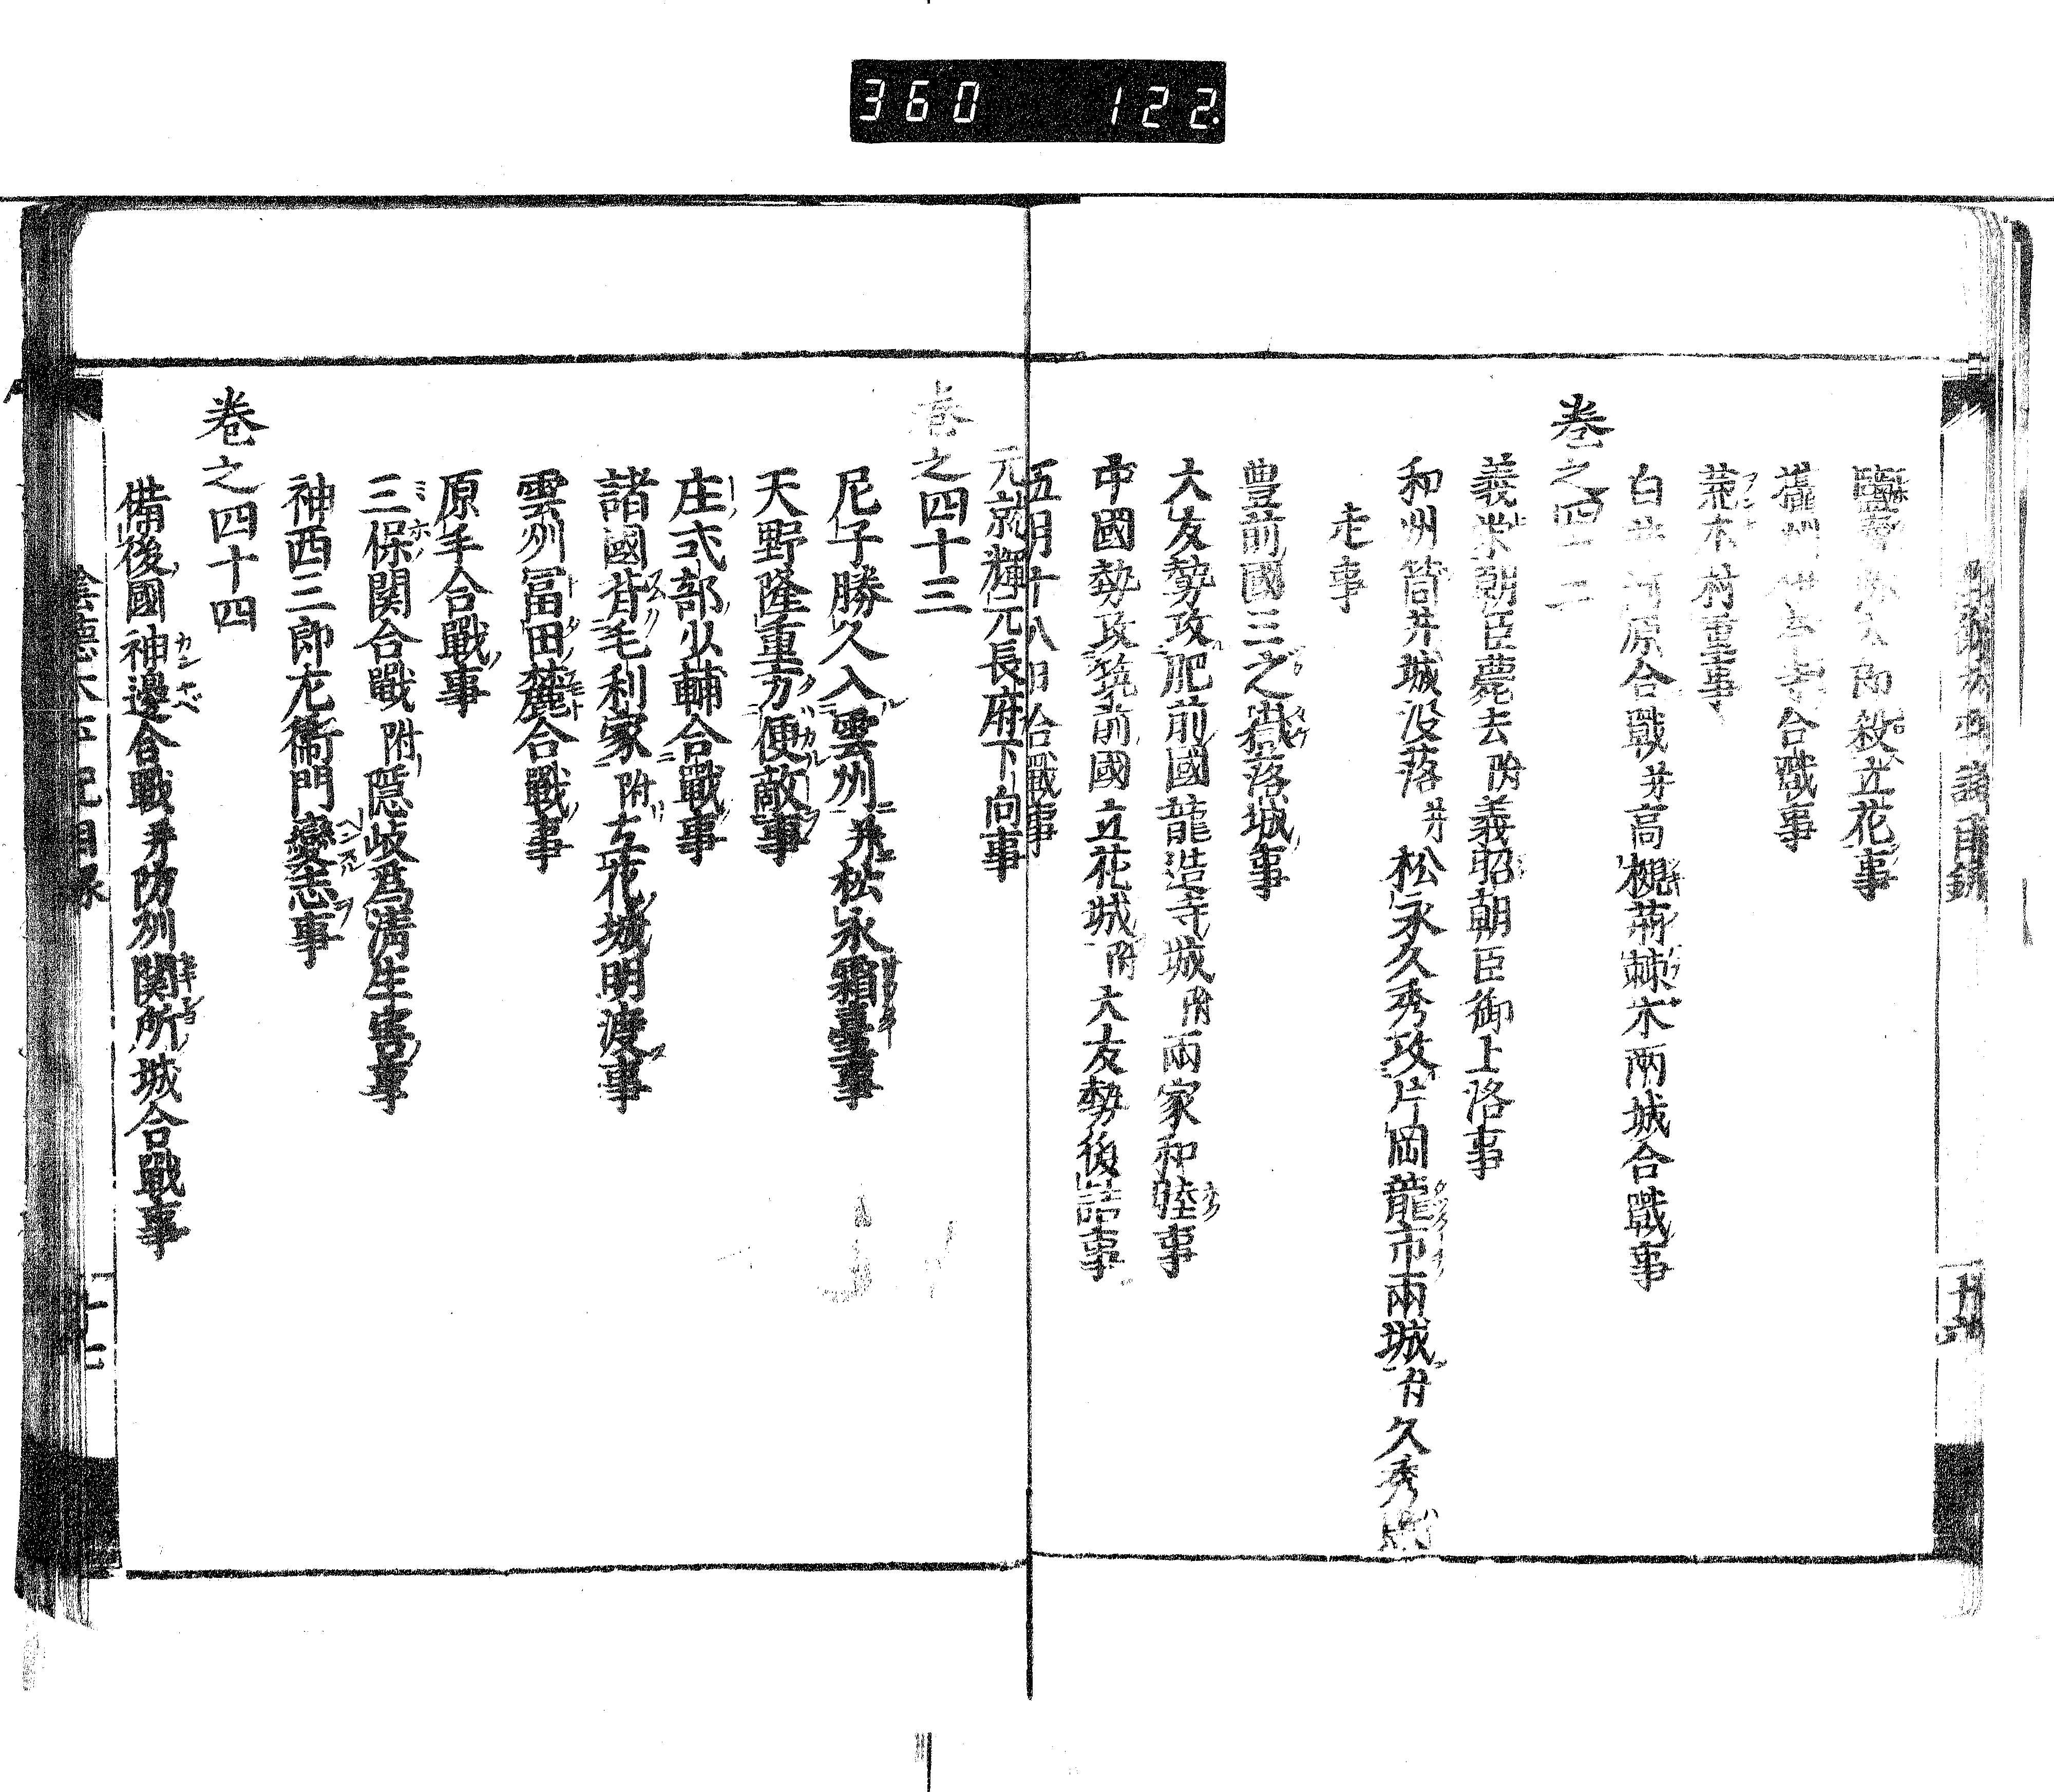 360 122
殺立花事
攝州 寺合戰事
荒木村重事
白井河原合戰并高槻荊棘木兩城合戰事
卷之四十二
義榮朝臣薨去附義昭朝臣御上洛事
和州筒井城沒落并松永久秀攻片岡龍市兩城付久秀
走事
豊前國三之嶽落城事
大友勢攻肥前國龍造寺城附兩家和睦事
中國勢攻筑前國立花城附大友勢後詰事
五月十八日合戰事
元就輝元長府下向事
卷之四十三
尼子勝久入雲州并松永霜臺事
天野隆重方便敵事
庄式部少輔合戰事
諸國背毛利家附立花城明渡事
雲州冨田麓合戰事
原手合戰事
三保関合戰附隠岐為清生害事
神西三郎左衛門變志事
卷之四十四
備後國神邊合戰并防州関所城合戰事
陰德太平記目録 十七